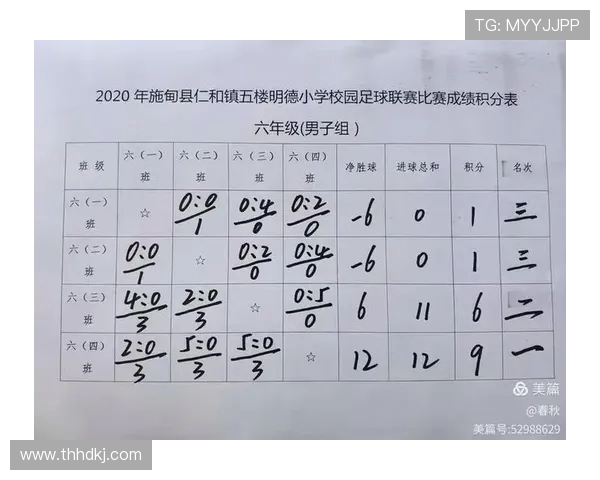 TG: MYYJJPP
2020 年施甸县仁和镇五楼明德小学校园足球联赛比赛成绩积分表
六年级(男子组 )
班 级 六（一）班 六（二）班 六（三）班 六（四）班 净胜球 进球总和 积分 名次
六（一）班 ☆ 0:0/1 0:4/0 0:2/0 -6 0 1 三
六（二）班 0:0/1 ☆ 0:2/0 0:4/0 -6 0 1 三
六（三）班 4:0/3 2:0/3 ☆ 0:5/0 6 11 6 二
六（四）班 2:0/3 5:0/3 5:0/3 ☆ 12 12 9 一
美篇
@春秋
美篇号:52988629
www.thhdkj.com